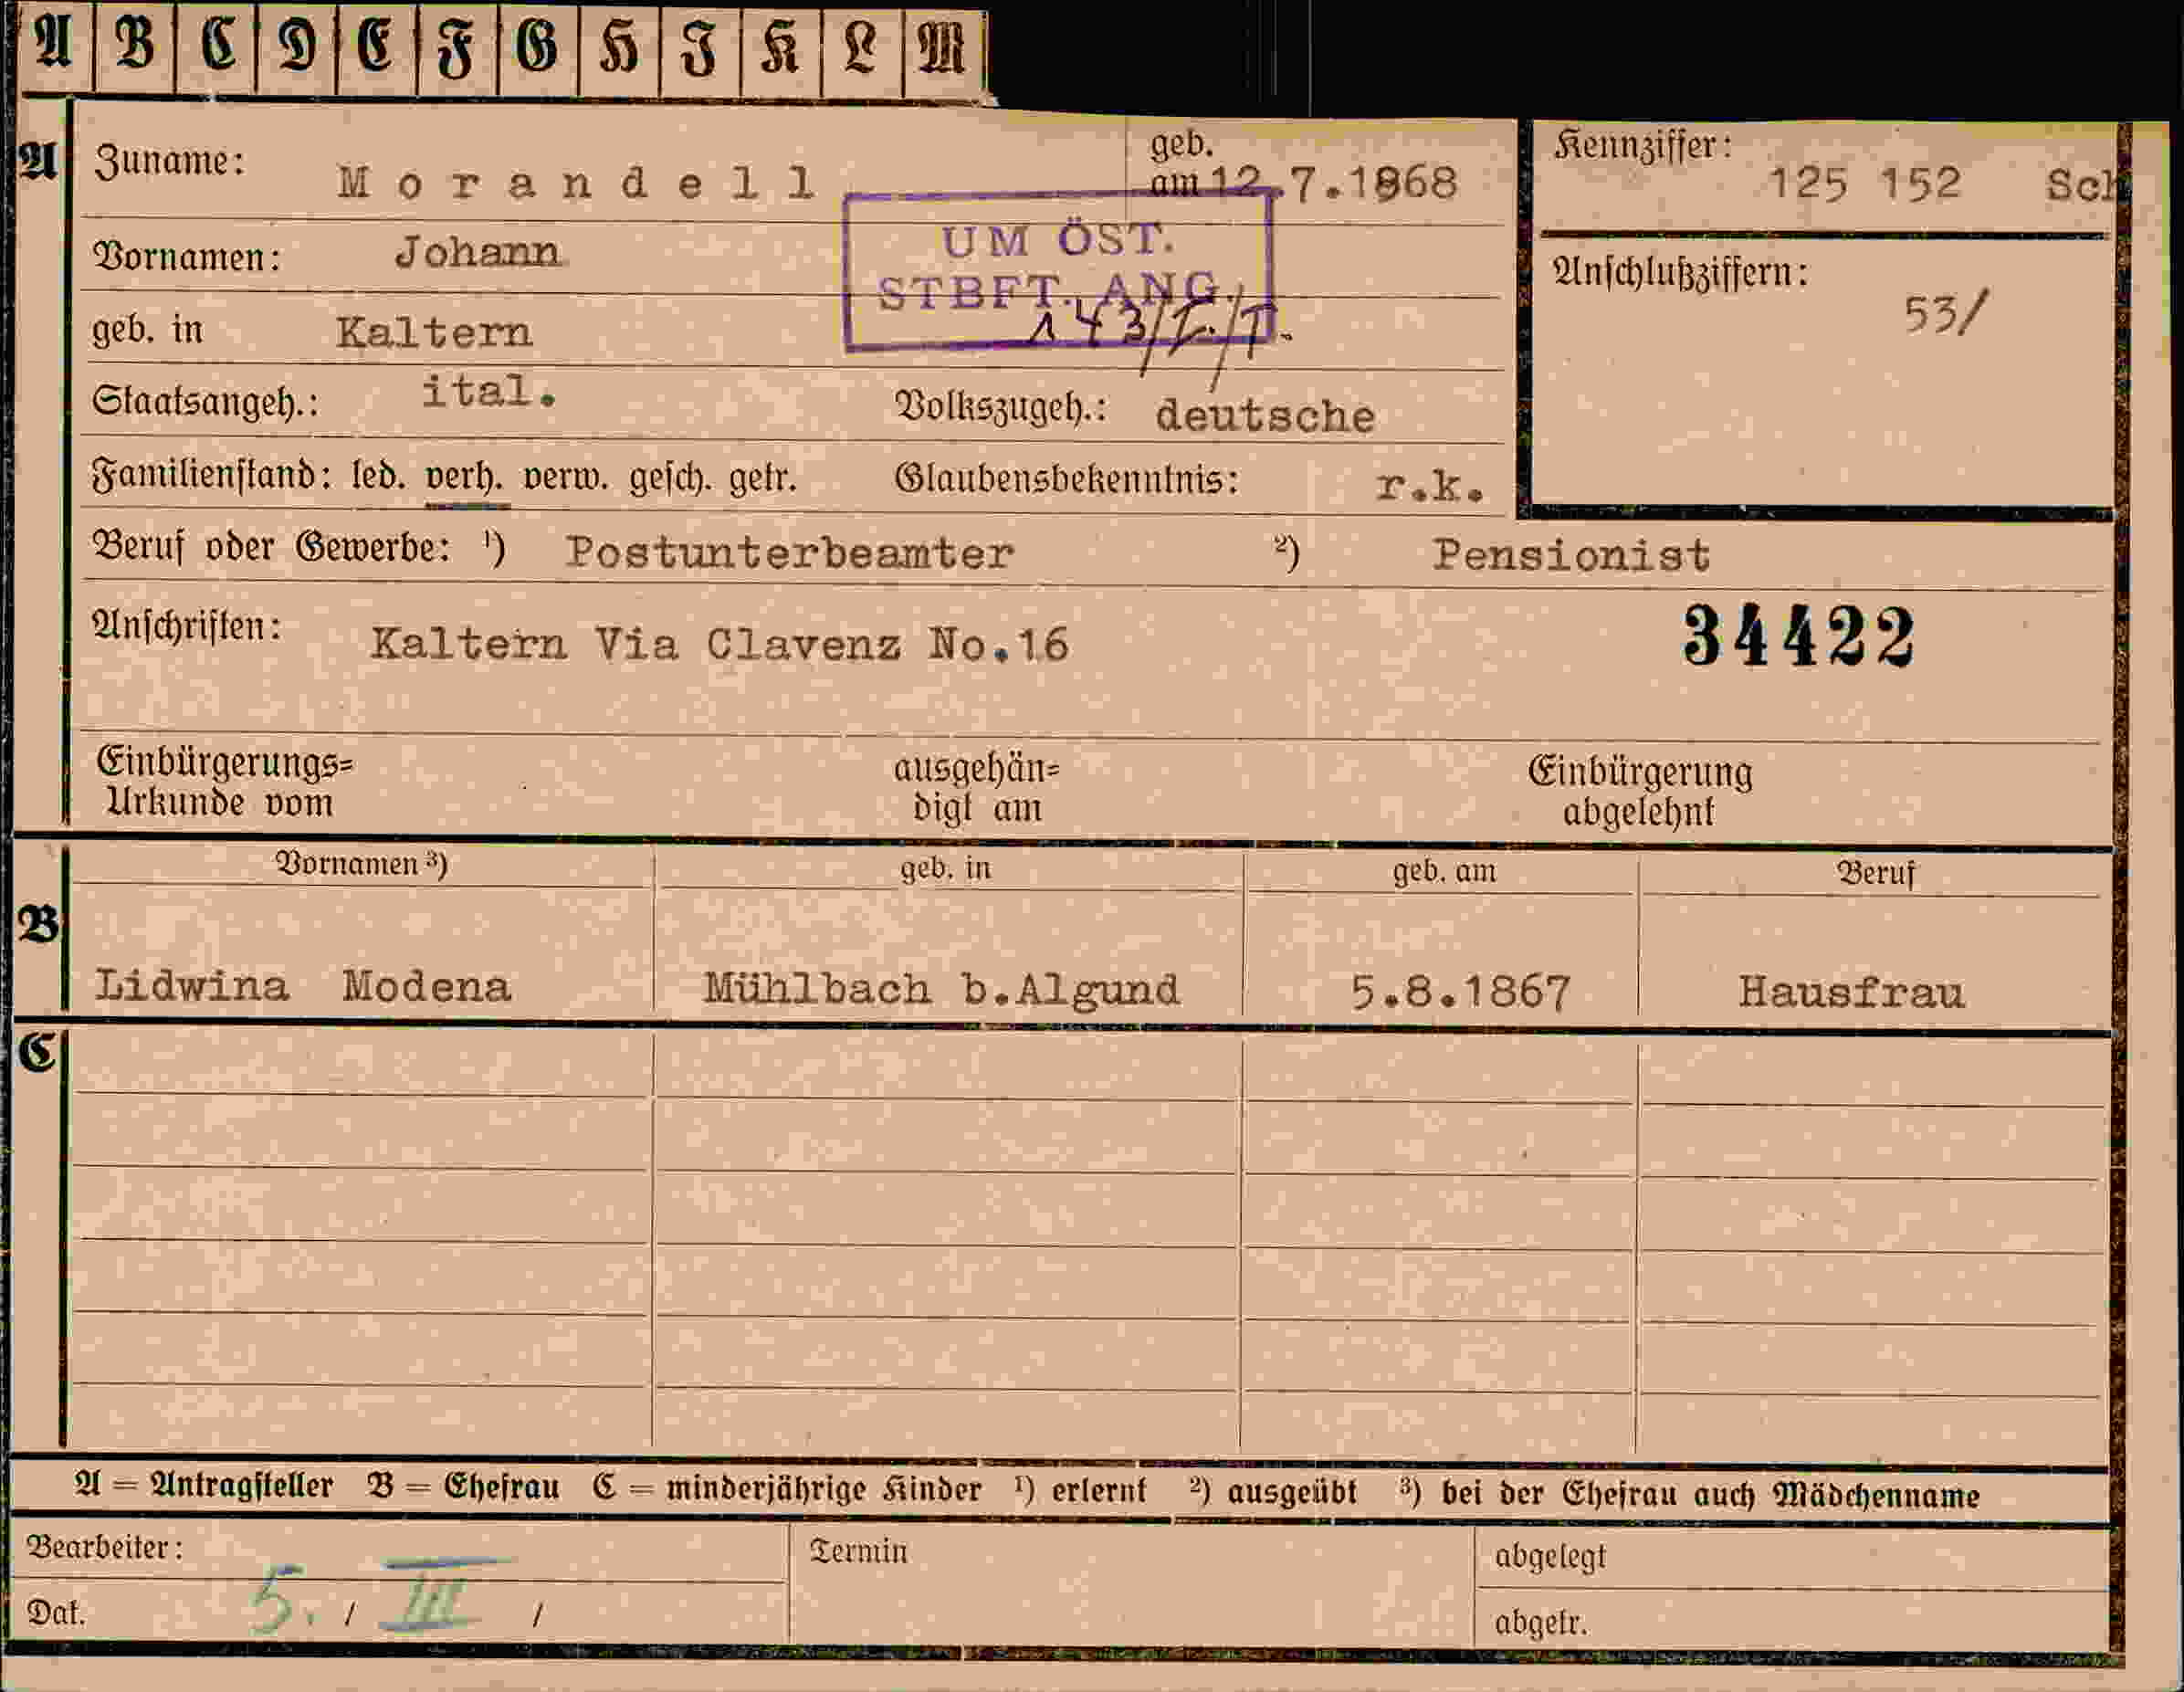 A B C D E F G H I K L M
A Zuname: Morandell geb. am 12.7.1868 Kennziffer: 125 152 Sch
UM ÖST.
STBFT. ANG.
Vornamen: Johann Anschlußziffern: 53/
geb. in Kaltern
Staatsangeh.: ital. Volkszugeh.: deutsche
Familienstand: led. verh. verw. gesch. getr. Glaubensbekenntnis: r.k.
Beruf oder Gewerbe: ¹) Postunterbeamter ²) Pensionist
Anschriften: Kaltern Via Clavenz No.16 34422
Einbürgerungs= ausgehän= Einbürgerung
Urkunde vom digt am abgelehnt
Vornamen ³) geb. in geb. am Beruf
B
Lidwina Modena Mühlbach b.Algund 5.8.1867 Hausfrau
C
A = Antragsteller B = Ehefrau C = minderjährige Kinder ¹) erlernt ²) ausgeübt ³) bei der Ehefrau auch Mädchenname
Bearbeiter: Termin abgelegt
Dat. 5. / III / abgetr.